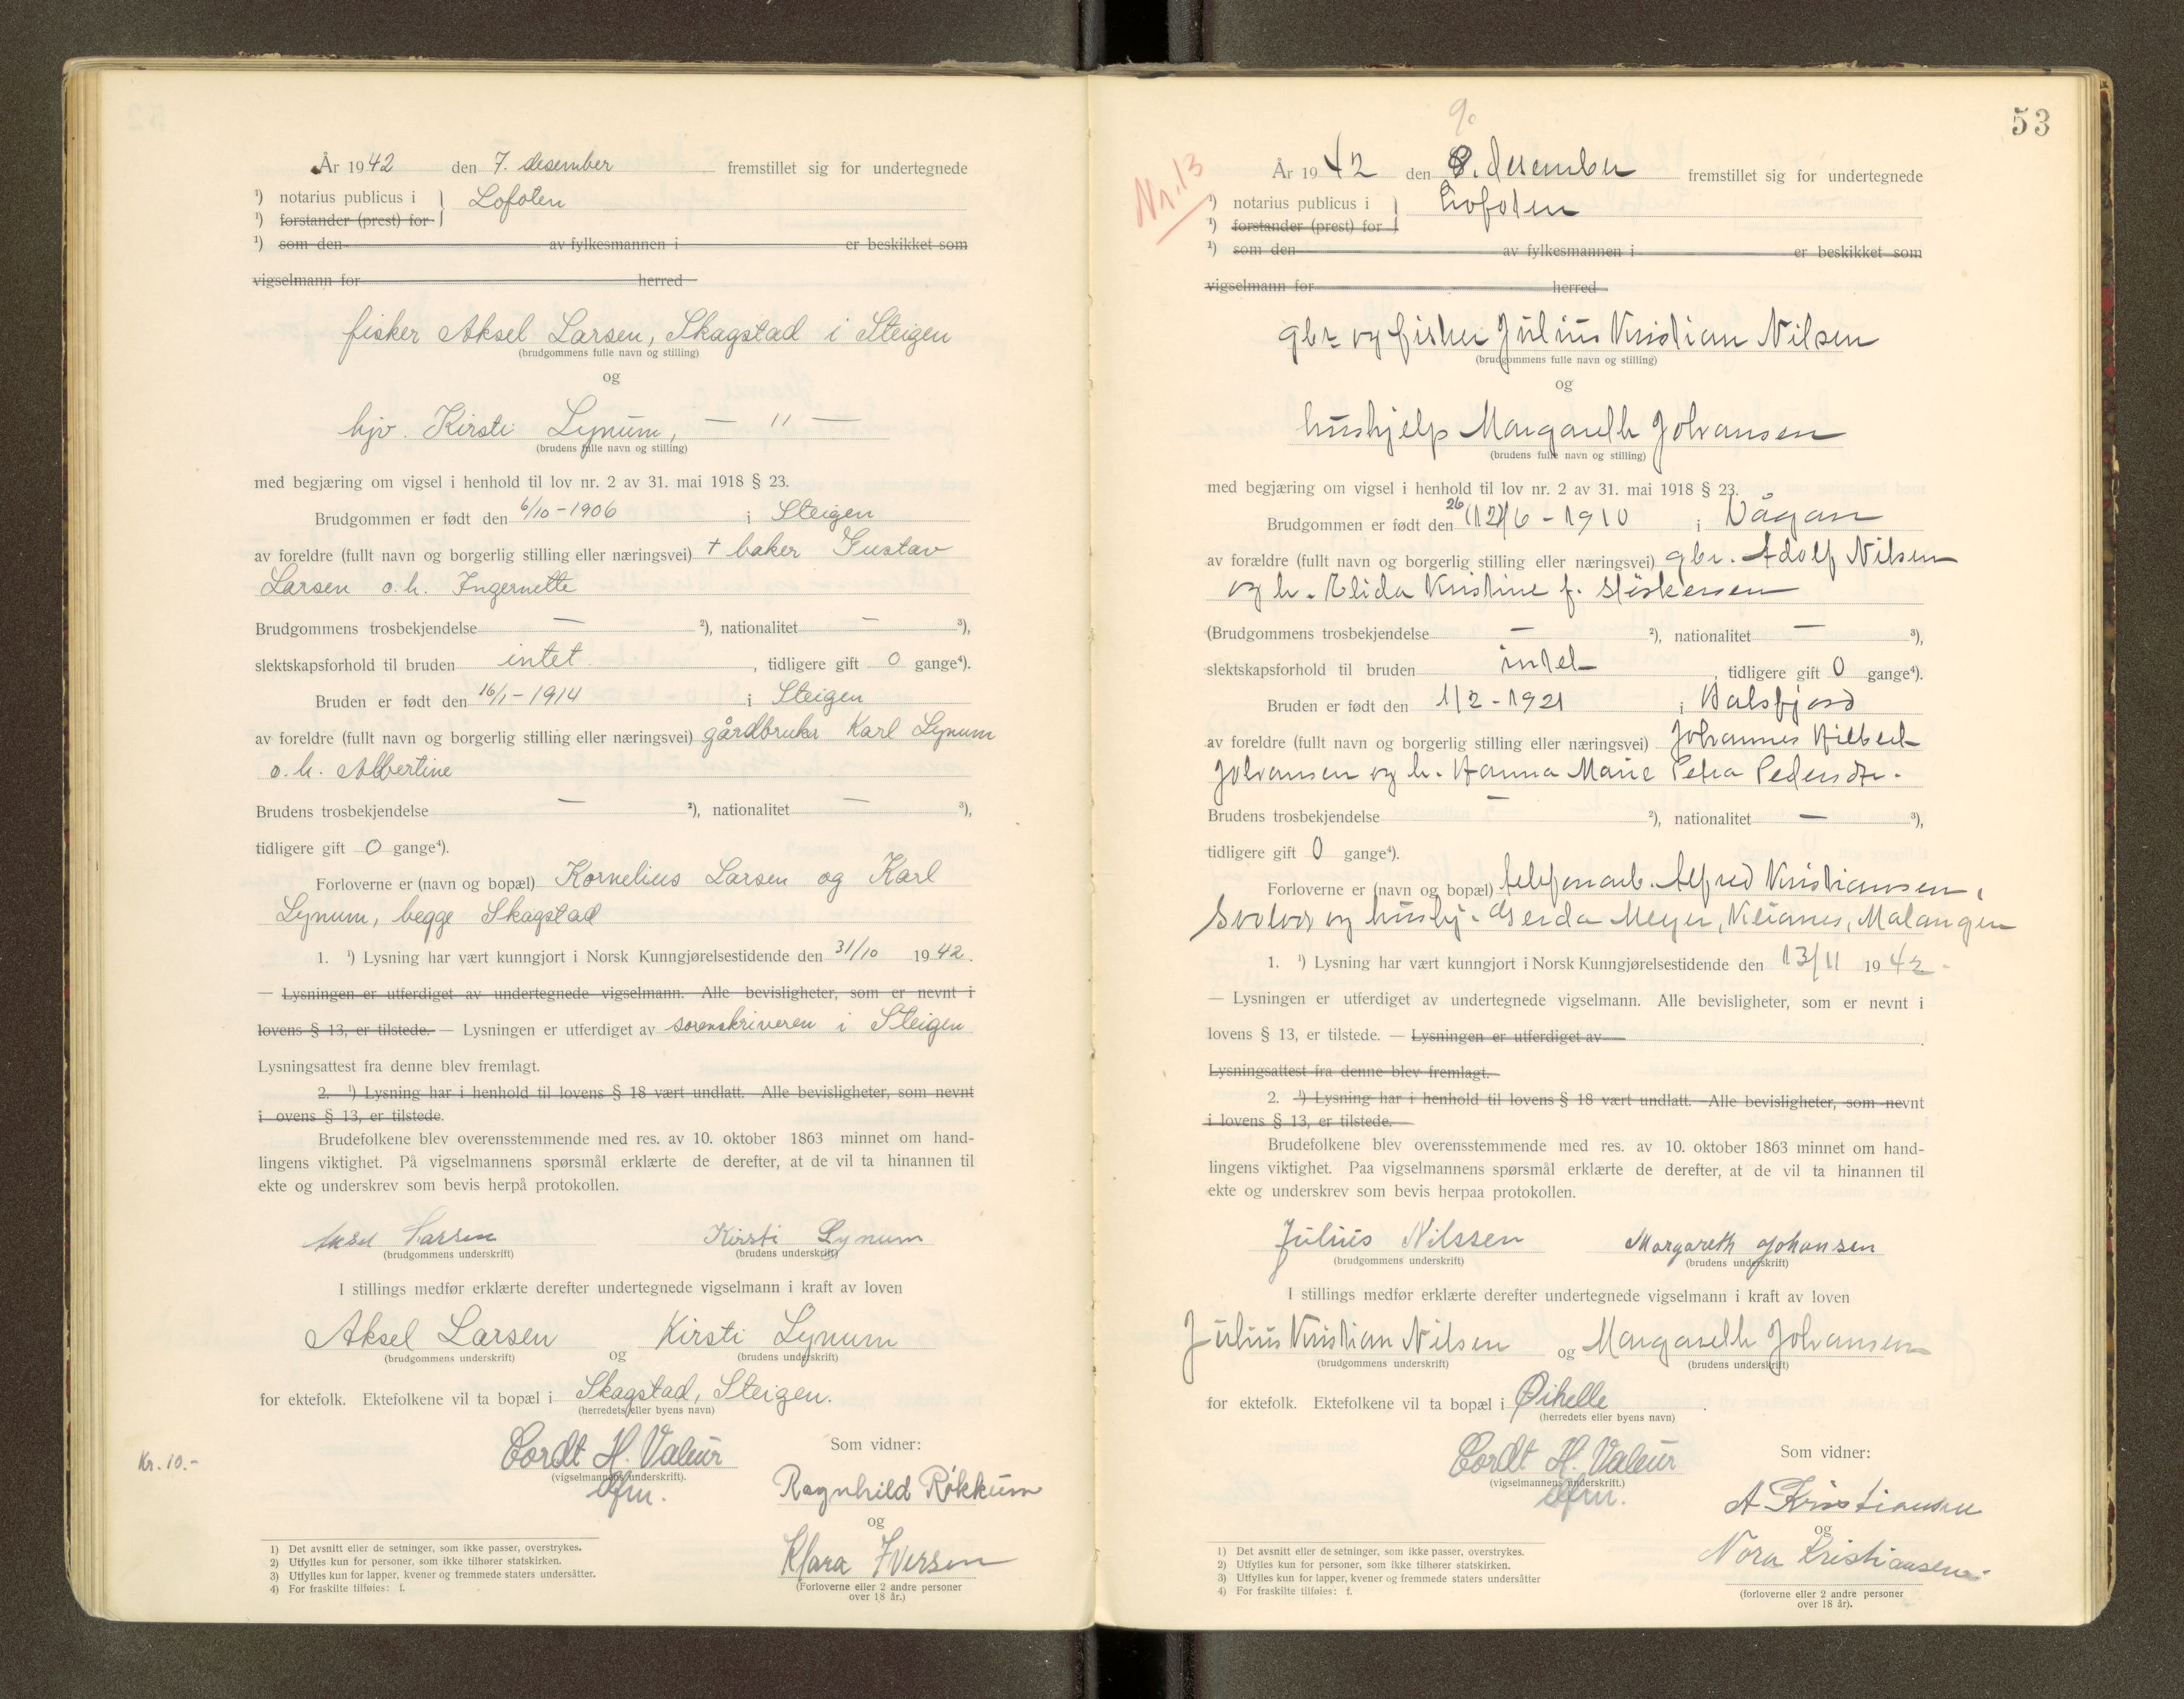 År 1942 den 7. desember fremstillet sig for undertegnede
¹) notarius publicus i } Lofoten
¹) forstander (prest) for
¹) som den av fylkesmannen i er beskikket som
vigselmann for herred
fisker Aksel Larsen, Skagstad i Steigen
(brudgommens fulle navn og stilling)
og
hjv. Kirsti Lynum, — " —
(brudens fulle navn og stilling)
med begjæring om vigsel i henhold til lov nr. 2 av 31. mai 1918 § 23.
Brudgommen er født den 6/10-1906 i Steigen
av foreldre (fullt navn og borgerlig stilling eller næringsvei) + baker Gustav
Larsen o.h. Ingernette
Brudgommens trosbekjendelse — ²), nationalitet — ³),
slektskapsforhold til bruden intet , tidligere gift 0 gange⁴).
Bruden er født den 16/1-1914 i Steigen
av foreldre (fullt navn og borgerlig stilling eller næringsvei) gårdbruker Karl Lynum
o.h. Albertine
Brudens trosbekjendelse — ²), nationalitet — ³),
tidligere gift 0 gange⁴).
Forloverne er (navn og bopæl) Kornelius Larsen og Karl
Lynum, begge Skagstad
1. ¹) Lysning har vært kunngjort i Norsk Kunngjørelsestidende den 31/10 1942.
— Lysningen er utferdiget av undertegnede vigselmann. Alle bevisligheter, som er nevnt i
lovens § 13, er tilstede. — Lysningen er utferdiget av sorenskriveren i Steigen
Lysningsattest fra denne blev fremlagt.
2. ¹) Lysning har i henhold til lovens § 18 vært undlatt. Alle bevisligheter, som nevnt
i ovens § 13, er tilstede.
Brudefolkene blev overensstemmende med res. av 10. oktober 1863 minnet om hand-
lingens viktighet. På vigselmannens spørsmål erklærte de derefter, at de vil ta hinannen til
ekte og underskrev som bevis herpå protokollen.
Aksel Larsen Kirsti Lynum
(brudgommens underskrift) (brudens underskrift)
I stillings medfør erklærte derefter undertegnede vigselmann i kraft av loven
Aksel Larsen og Kirsti Lynum
(brudgommens underskrift) (brudens underskrift)
for ektefolk. Ektefolkene vil ta bopæl i Skagstad, Steigen.
(herredets eller byens navn)
Kr. 10.-
Cordt H. Valeur
(vigselmannens underskrift).
Som vidner:
Ragnhild Røkkum
og
Klara Iversen
(Forloverne eller 2 andre personer
over 18 år.)
1) Det avsnitt eller de setninger, som ikke passer, overstrykes.
2) Utfylles kun for personer, som ikke tilhører statskirken.
3) Utfylles kun for lapper, kvener og fremmede staters undersåtter.
4) For fraskilte tilføies: f.
53
9.
Nr. 13
År 1942 den 8. desember fremstillet sig for undertegnede
¹) notarius publicus i } Lofoten
¹) forstander (prest) for
¹) som den av fylkesmannen i er beskikket som
vigselmann for herred
gbr. og fisker Julius Kristian Nilsen
(brudgommens fulle navn og stilling)
og
hushjelp Margareth Johansen
(brudens fulle navn og stilling)
med begjæring om vigsel i henhold til lov nr. 2 av 31. mai 1918 § 23.
Brudgommen er født den 26 (12)/6 - 1910 i Vågan
av forældre (fullt navn og borgerlig stilling eller næringsvei) gbr. Adolf Nilsen
og h. Elida Kristine f.
(Brudgommens trosbekjendelse — ²), nationalitet — ³),
slektskapsforhold til bruden intet , tidligere gift 0 gange⁴).
Bruden er født den 1/2 - 1921 i Balsfjord
av foreldre (fullt navn og borgerlig stilling eller næringsvei) Johannes Hilbert
Johansen og h. Hanna Marie Petra Pedersdtr.
Brudens trosbekjendelse — ²), nationalitet — ³),
tidligere gift 0 gange⁴).
Forloverne er (navn og bopæl) telefonarb. Alfred Kristiansen,
Svolvær og hushj. Gerda Meyer, Malangen
1. ¹) Lysning har vært kunngjort i Norsk Kunngjørelsestidende den 13/11 1942-
— Lysningen er utferdiget av undertegnede vigselmann. Alle bevisligheter, som er nevnt i
lovens § 13, er tilstede. — Lysningen er utferdiget av
Lysningsattest fra denne blev fremlagt.
2. ¹) Lysning har i henhold til lovens § 18 vært undlatt. Alle bevisligheter, som nevnt
i lovens § 13, er tilstede.
Brudefolkene blev overensstemmende med res. av 10. oktober 1863 minnet om hand-
lingens viktighet. Paa vigselmannens spørsmål erklærte de derefter, at de vil ta hinannen til
ekte og underskrev som bevis herpaa protokollen.
Julius Nilssen Margareth Johansen
(brudgommens underskrift) (brudens underskrift)
I stillings medfør erklærte derefter undertegnede vigselmann i kraft av loven
Julius Kristian Nilsen og Margareth Johansen
(brudgommens underskrift) (brudens underskrift)
for ektefolk. Ektefolkene vil ta bopæl i Øihelle .
(herredets eller byens navn)
Cordt H. Valeur
(vigselmannens underskrift.)
Som vidner:
A Kristiansen
og
Nora Kristiansen
(forloverne eller 2 andre personer
over 18 år).
1) Det avsnitt eller de setninger, som ikke passer, overstrykes.
2) Utfylles kun for personer, som ikke tilhører statskirken.
3) Utfylles kun for lapper, kvener og fremmede staters undersåtter
4) For fraskilte tilføies: f.